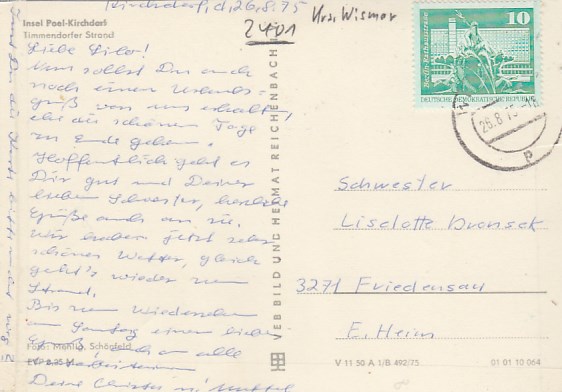 Kirchdorf, d. 26.8.75
Insel Poel-Kirchdorf
Timmendorfer Strand
2401 Krs. Wismar
Liebe Lilo!
Nun sollst Du auch
noch einen Urlaubs=
gruß von uns erhalten,
ehe die schönen Tage
zu Ende gehen.
Hoffentlich geht es
Dir gut und Deiner
lieben Schwester, herzliche
Grüße auch an sie.
Wir haben jetzt sehr
schönes Wetter, gleich
geht's wieder zum
Strand.
Bis zum Wiedersehen
am Sonntag einen lieben
Gruß, auch an alle
Deine Christa u.
Foto: Schönfeld
VEB BILD UND HEIMAT REICHENBACH
10
Berlin-Rathausstraße
DEUTSCHE DEMOKRATISCHE REPUBLIK
26.8.75
Schwester
Liselotte Dronsek
3271 Friedensau
E. Heim
V 11 50 A 1/B 492/75
01 01 10 064